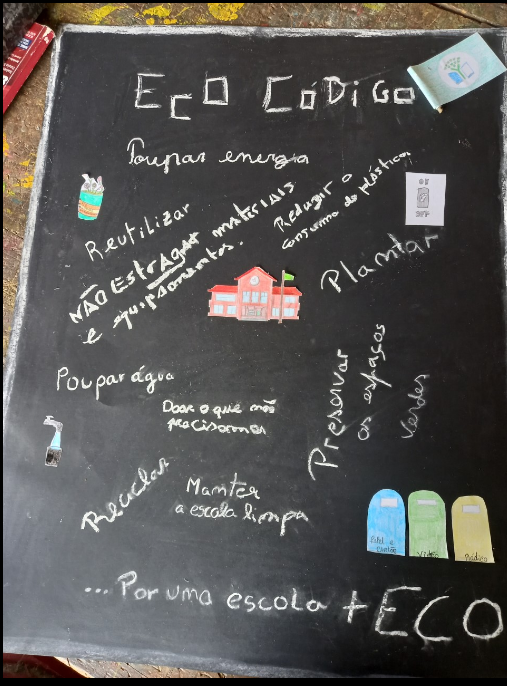 ECO CÓDIGO
Poupar energia
Reutilizar
NÃO EStrAGAr materiais
e equipamentos.
Reduzir o
consumo de plásticos
Plantar
Poupar água
Doar o que não
precisamos
Preservar
os espaços
verdes
Reciclar
Manter
a escola limpa
Papel e
Cartão
Vidro
...Por uma escola + ECO